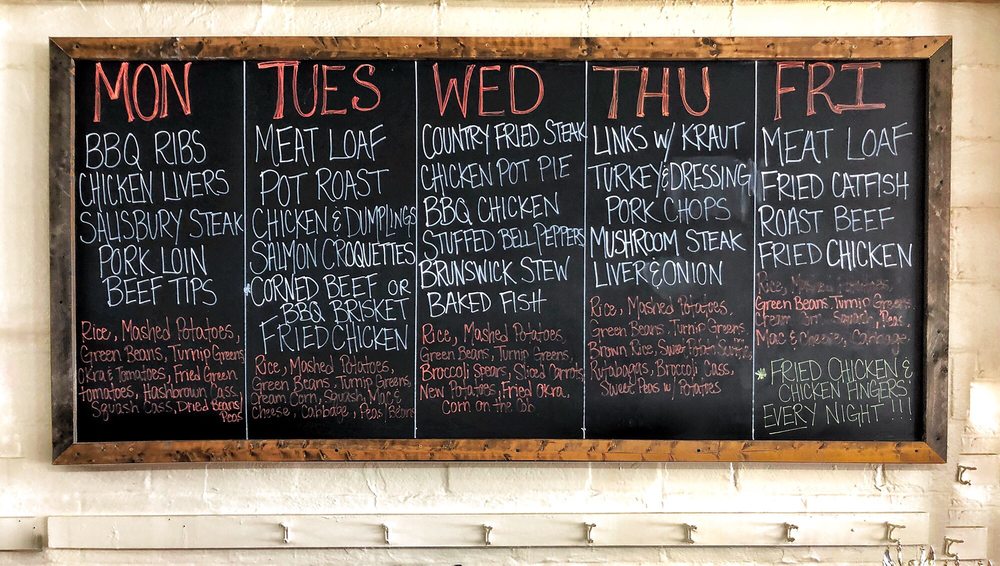 MON
BBQ RIBS
CHICKEN LIVERS
SALISBURY STEAK
PORK LOIN
BEEF TIPS
Rice, Mashed Potatoes,
Green Beans, Turnip Greens
Okra & Tomatoes, Fried Green
tomatoes, Hashbrown Cass,
Squash Cass, Dried Beans/
Peas
TUES
MEAT LOAF
POT ROAST
CHICKEN & DUMPLINGS
SALMON CROQUETTES
*CORNED BEEF OR
BBQ BRISKET
FRIED CHICKEN
Rice, Mashed Potatoes,
Green Beans, Turnip Greens,
Cream Corn, Squash, Mac &
Cheese, Cabbage, Peas/Beans
WED
COUNTRY FRIED STEAK
CHICKEN POT PIE
BBQ CHICKEN
STUFFED BELL PEPPERS
BRUNSWICK STEW
BAKED FISH
Rice, Mashed Potatoes,
Green Beans, Turnip Greens
Broccoli Spears, Sliced Carrots,
New Potatoes, Fried Okra,
Corn on the Cob
THU
LINKS W/ KRAUT
TURKEY & DRESSING
PORK CHOPS
MUSHROOM STEAK
LIVER & ONION
Rice, Mashed Potatoes,
Green Beans, Turnip Greens,
Brown Rice, Sweet Potato Souffle,
Rutabagas, Broccoli Cass,
Sweet Peas w/ Potatoes
FRI
MEAT LOAF
FRIED CATFISH
ROAST BEEF
FRIED CHICKEN
Rice, Mashed Potatoes,
Green Beans, Turnip Greens,
Cream Squash, Peas,
Mac & Cheese, Cabbage
* FRIED CHICKEN &
CHICKEN FINGERS
EVERY NIGHT!!!